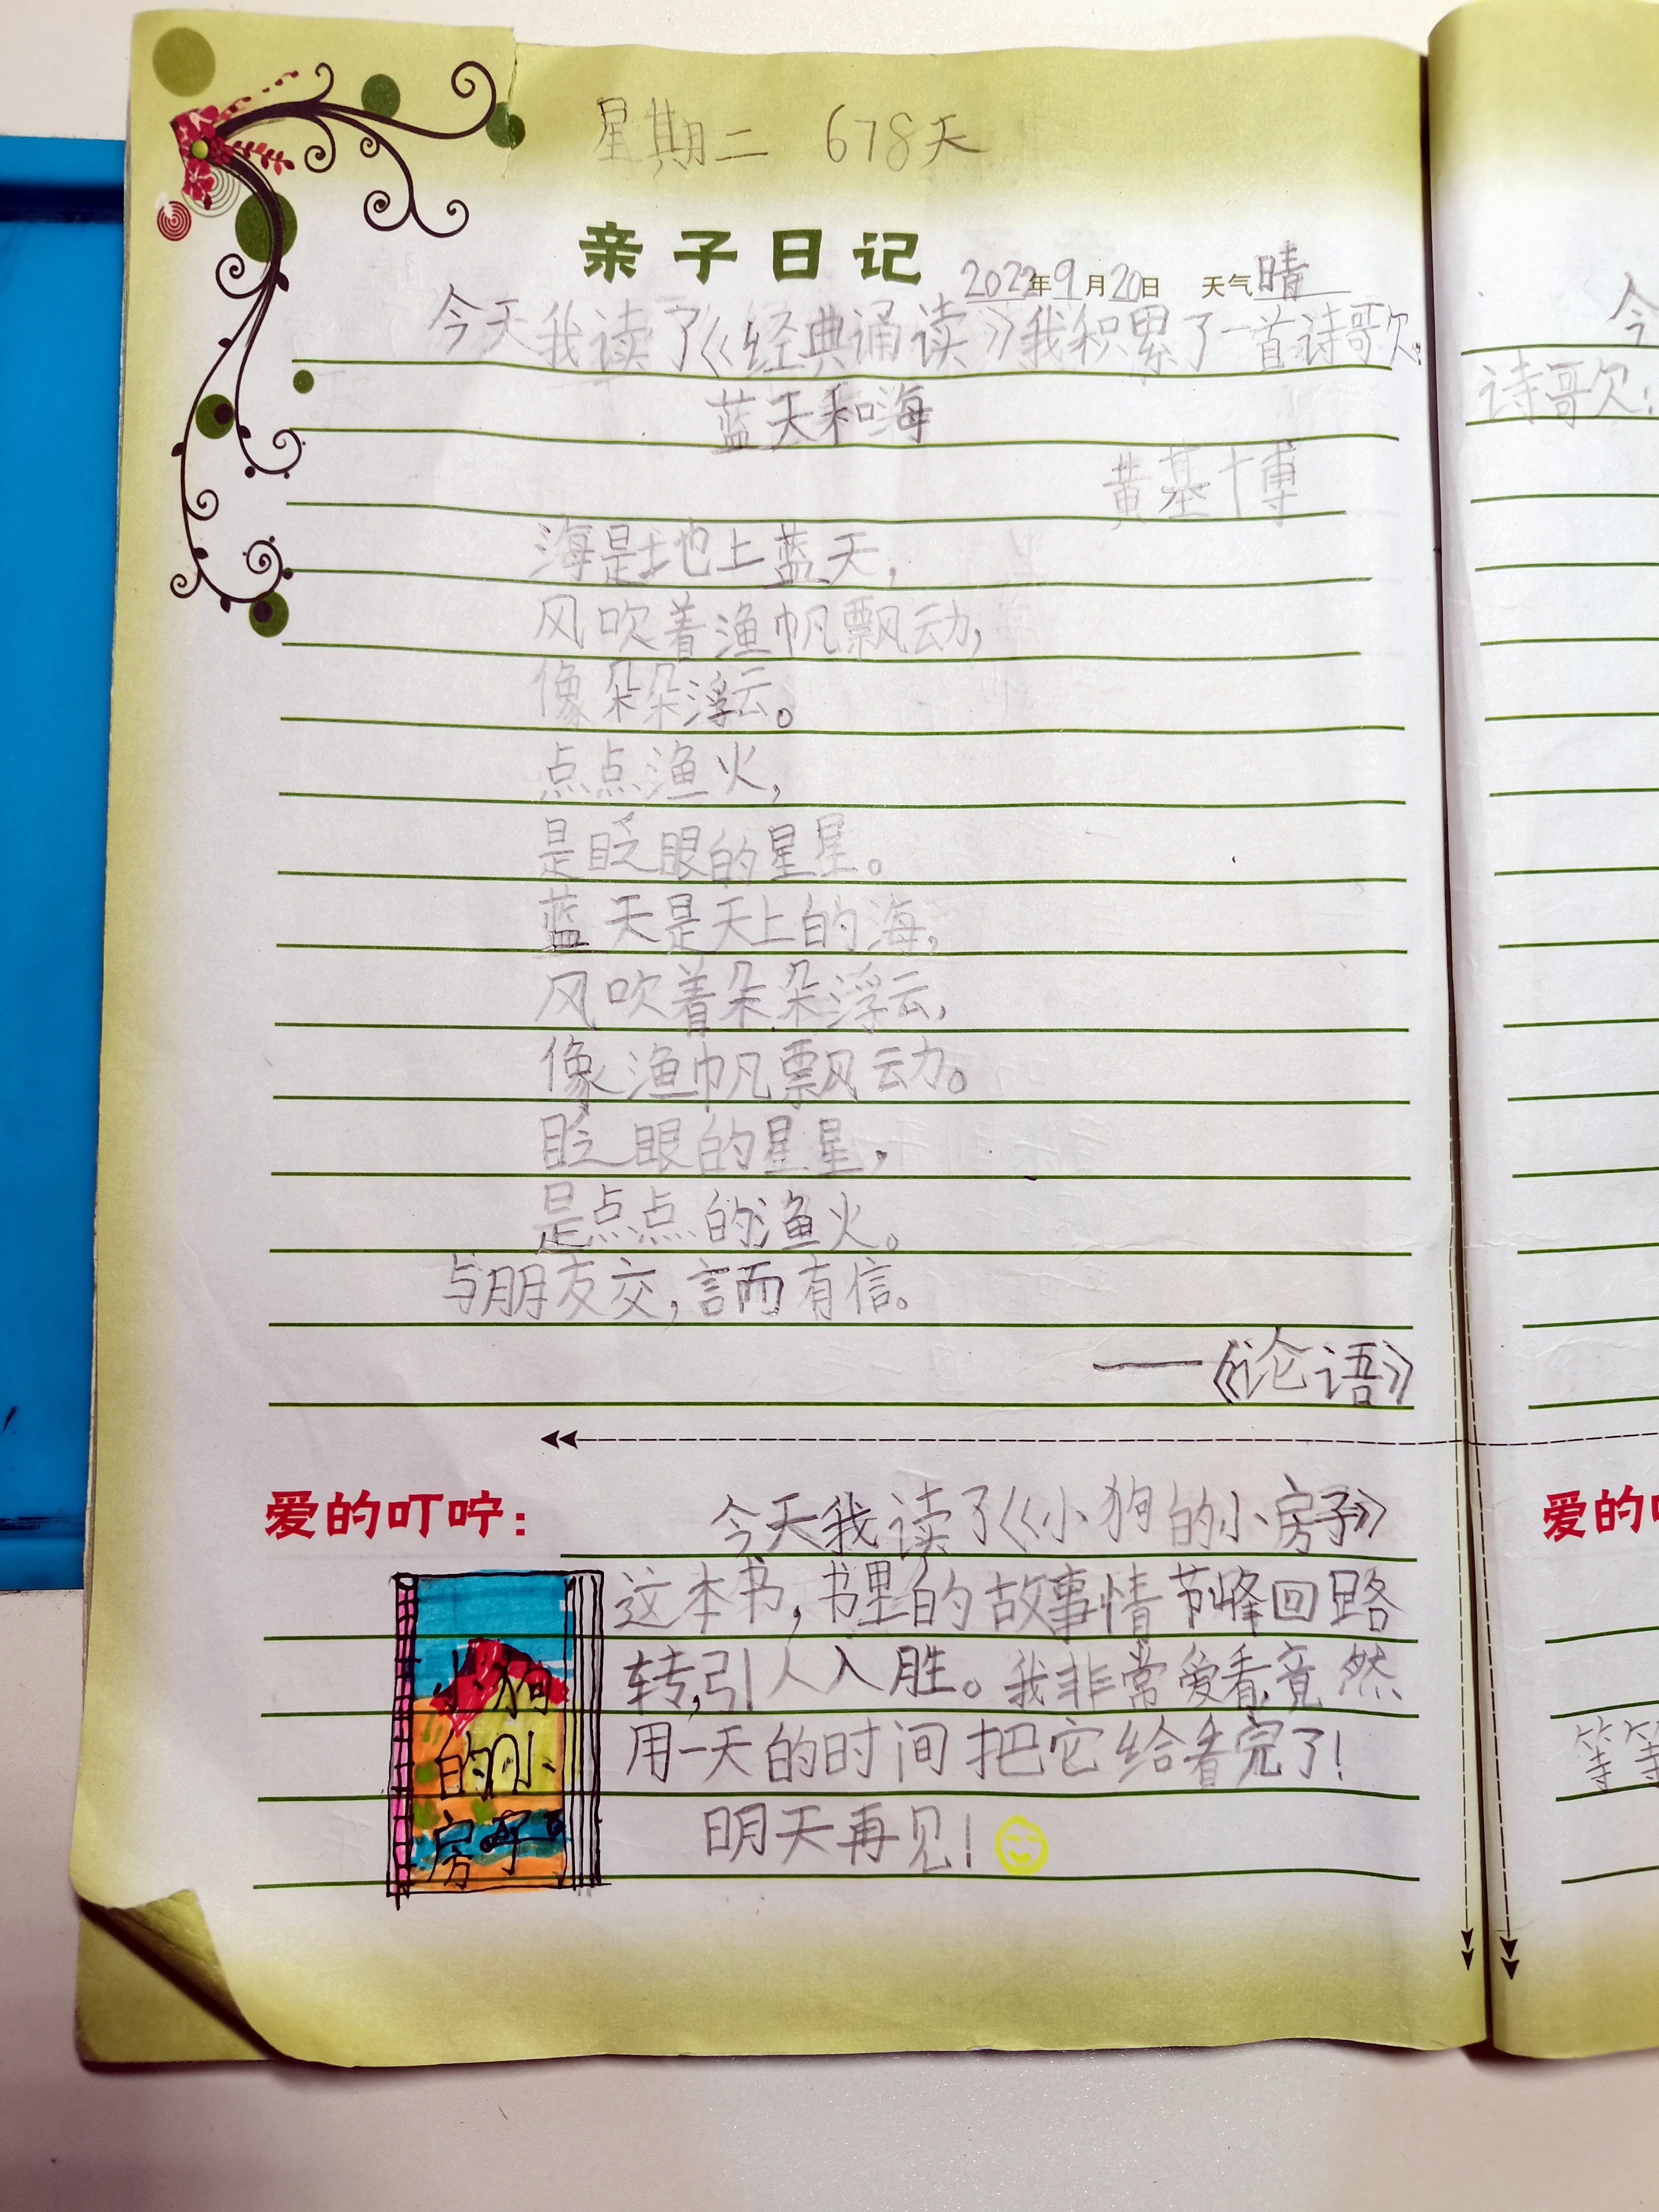 星期二 678天
亲子日记 2022年9月20日 天气晴
今天我读了《经典诵读》我积累了一首诗歌:
蓝天和海
黄基博
海是地上蓝天,
风吹着渔帆飘动,
像朵朵浮云。
点点渔火,
是眨眼的星星。
蓝天是天上的海,
风吹着朵朵浮云,
像渔帆飘动。
眨眼的星星,
是点点的渔火。
与朋友交,言而有信。
——《论语》
爱的叮咛: 今天我读了《小狗的小房子》
这本书,书里的故事情节峰回路
转,引人入胜。我非常爱看,竟然
用一天的时间把它给看完了!
明天再见!
小狗
的小
房子
今
诗歌:
爱的
等等